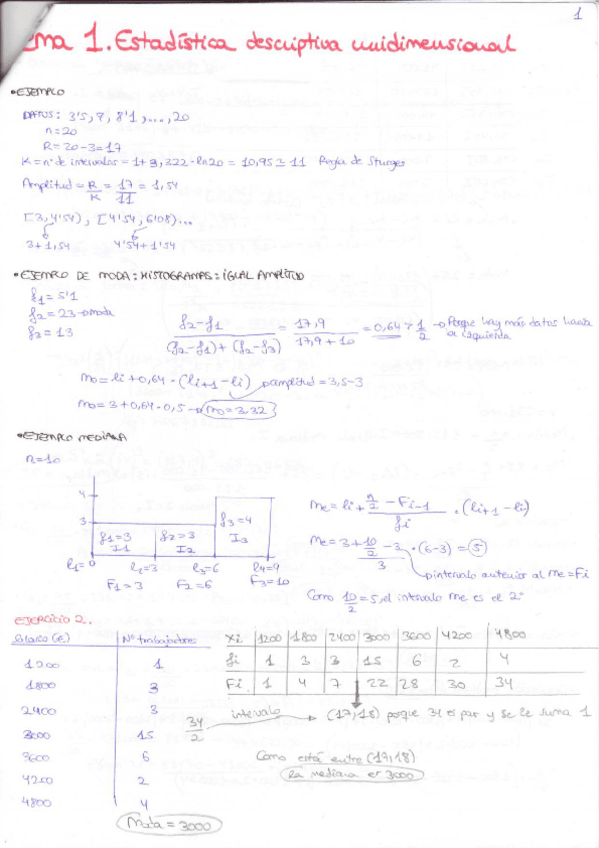 1
ma 1. Estadística descriptiva unidimensional
•EJEMPLO
DATOS: 3'5, 7, 8'1, ..., 20
n=20
R= 20-3=17
K= nº de intervalos = 1+3,322·ln20 = 10,95 ≃ 11 Regla de Sturges
Amplitud = R/K = 17/11 = 1,54
[3, 4'54), [4'54, 6'08)...
3+1,54 4'54+1'54
•EJEMPLO DE MODA: HISTOGRAMAS: IGUAL AMPLITUD
f1 = 5'1
f2 = 23 → moda
f3 = 13
f2-f1 / (f2-f1)+(f2-f3) = 17,9 / 17,9+10 = 0,64 > 1/2 → Porque hay más datos hacia la izquierda
mo = li+0,64·(li+1-li) → amplitud = 3,5-3
mo = 3+0,64·0,5 → mo=3,32
•EJEMPLO MEDIANA
n=10
4
3
f1=3 I1
f2=3 I2
f3=4 I3
l1=0 l2=3 l3=6 l4=9
F1=3 F2=6 F3=10
me = li + n/2 - Fi-1 / fi · (li+1-li)
me = 3 + 10/2 - 3 / 3 · (6-3) = 5
→ intervalo anterior al me = Fi
Como 10/2 = 5, el intervalo me es el 2º
EJERCICIO 2.
Salario (€) Nº trabajadores
1200 1
1800 3
2400 3
3000 15
3600 6
4200 2
4800 4
Moda = 3000
Xi 1200 1800 2400 3000 3600 4200 4800
fi 1 3 3 15 6 2 4
Fi 1 4 7 22 28 30 34
34/2 intervalo → (17,18) porque 34 es par y se le suma 1
Como está entre (17,18)
la mediana es 3000